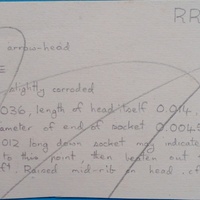 RR
arrow-head
slightly corroded
036, length of head itself 0.014,
ameter of end of socket 0.0045
012 long down socket may indicate
to this point, then beaten out
ft. Raised mid-rib on head. cf.